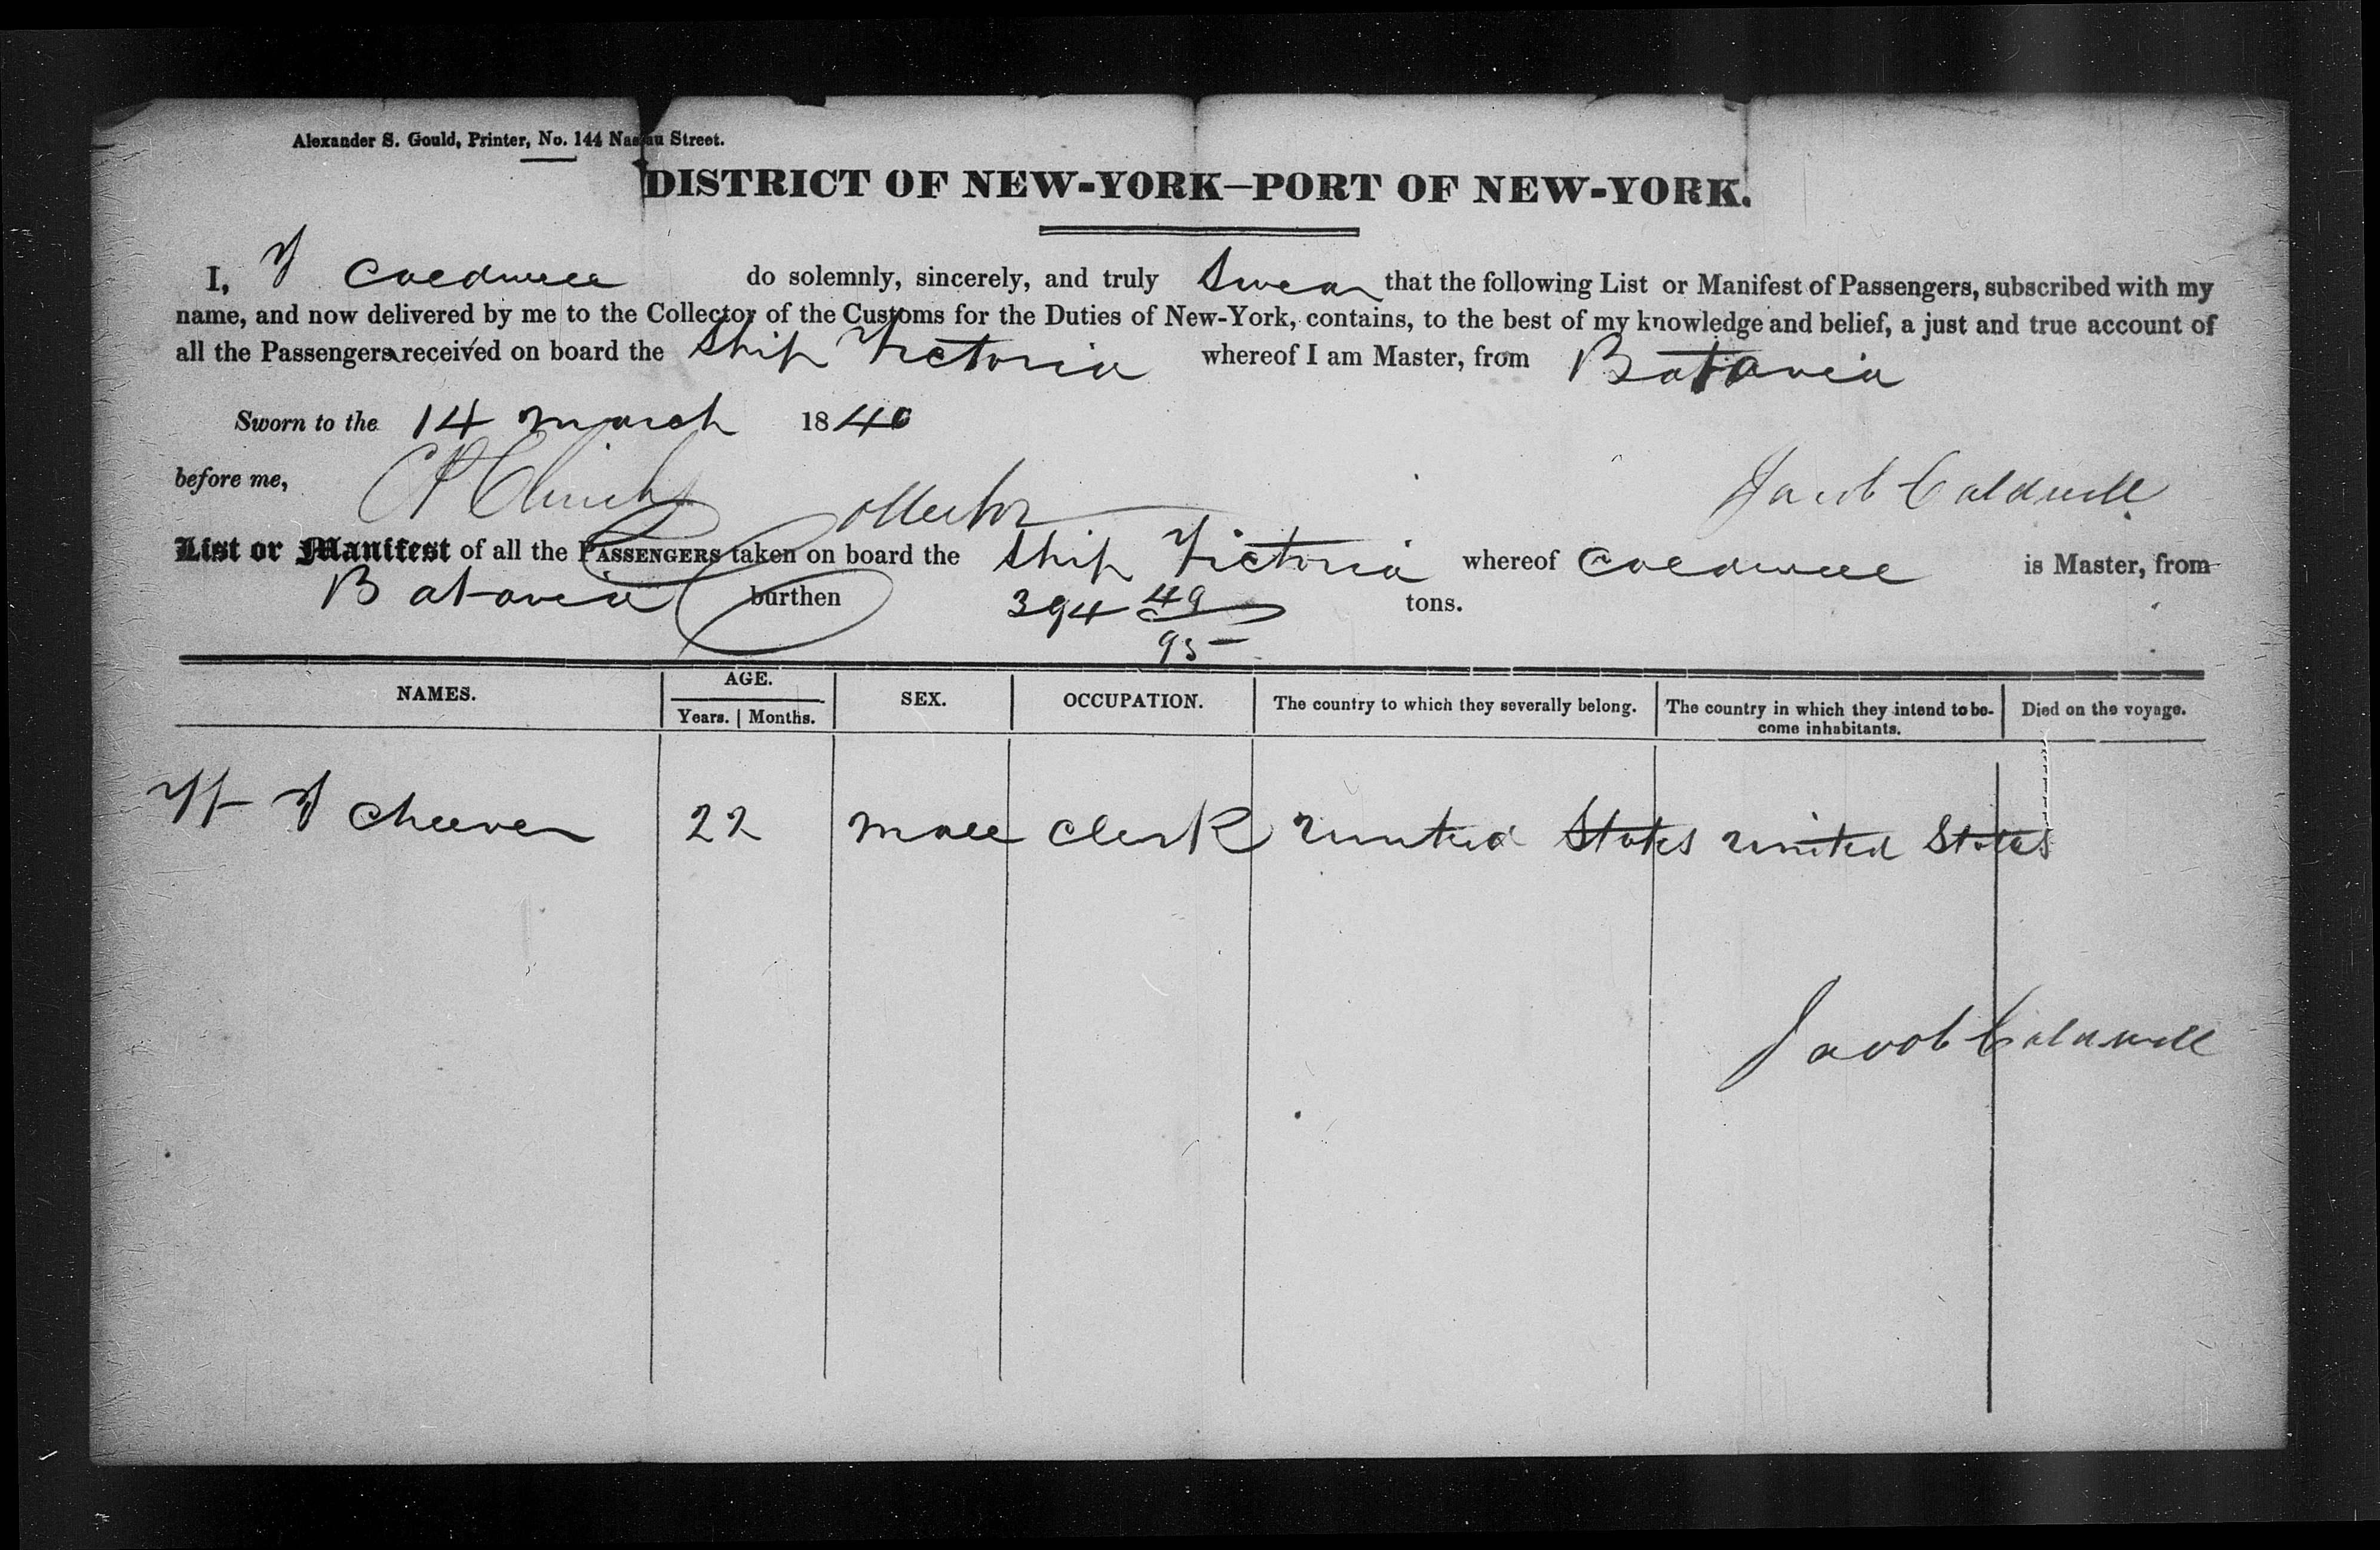 Alexander S. Gould, Printer, No. 144 Nassau Street.
DISTRICT OF NEW-YORK—PORT OF NEW-YORK.
I, J Caldwell do solemnly, sincerely, and truly Swear that the following List or Manifest of Passengers, subscribed with my
name, and now delivered by me to the Collector of the Customs for the Duties of New-York, contains, to the best of my knowledge and belief, a just and true account of
all the Passengers received on board the Ship Victoria whereof I am Master, from Batavia
Sworn to the 14 march 1840
before me, Collector Jacob Caldwell
List or Manifest of all the PASSENGERS taken on board the Ship Victoria whereof Caldwell is Master, from
Batavia burthen 394 49/95 tons.
NAMES. AGE. SEX. OCCUPATION. The country to which they severally belong. The country in which they intend to be- Died on the voyage.
Years. Months. come inhabitants.
J Cheever 22 male clerk united States united States
Jacob Caldwell